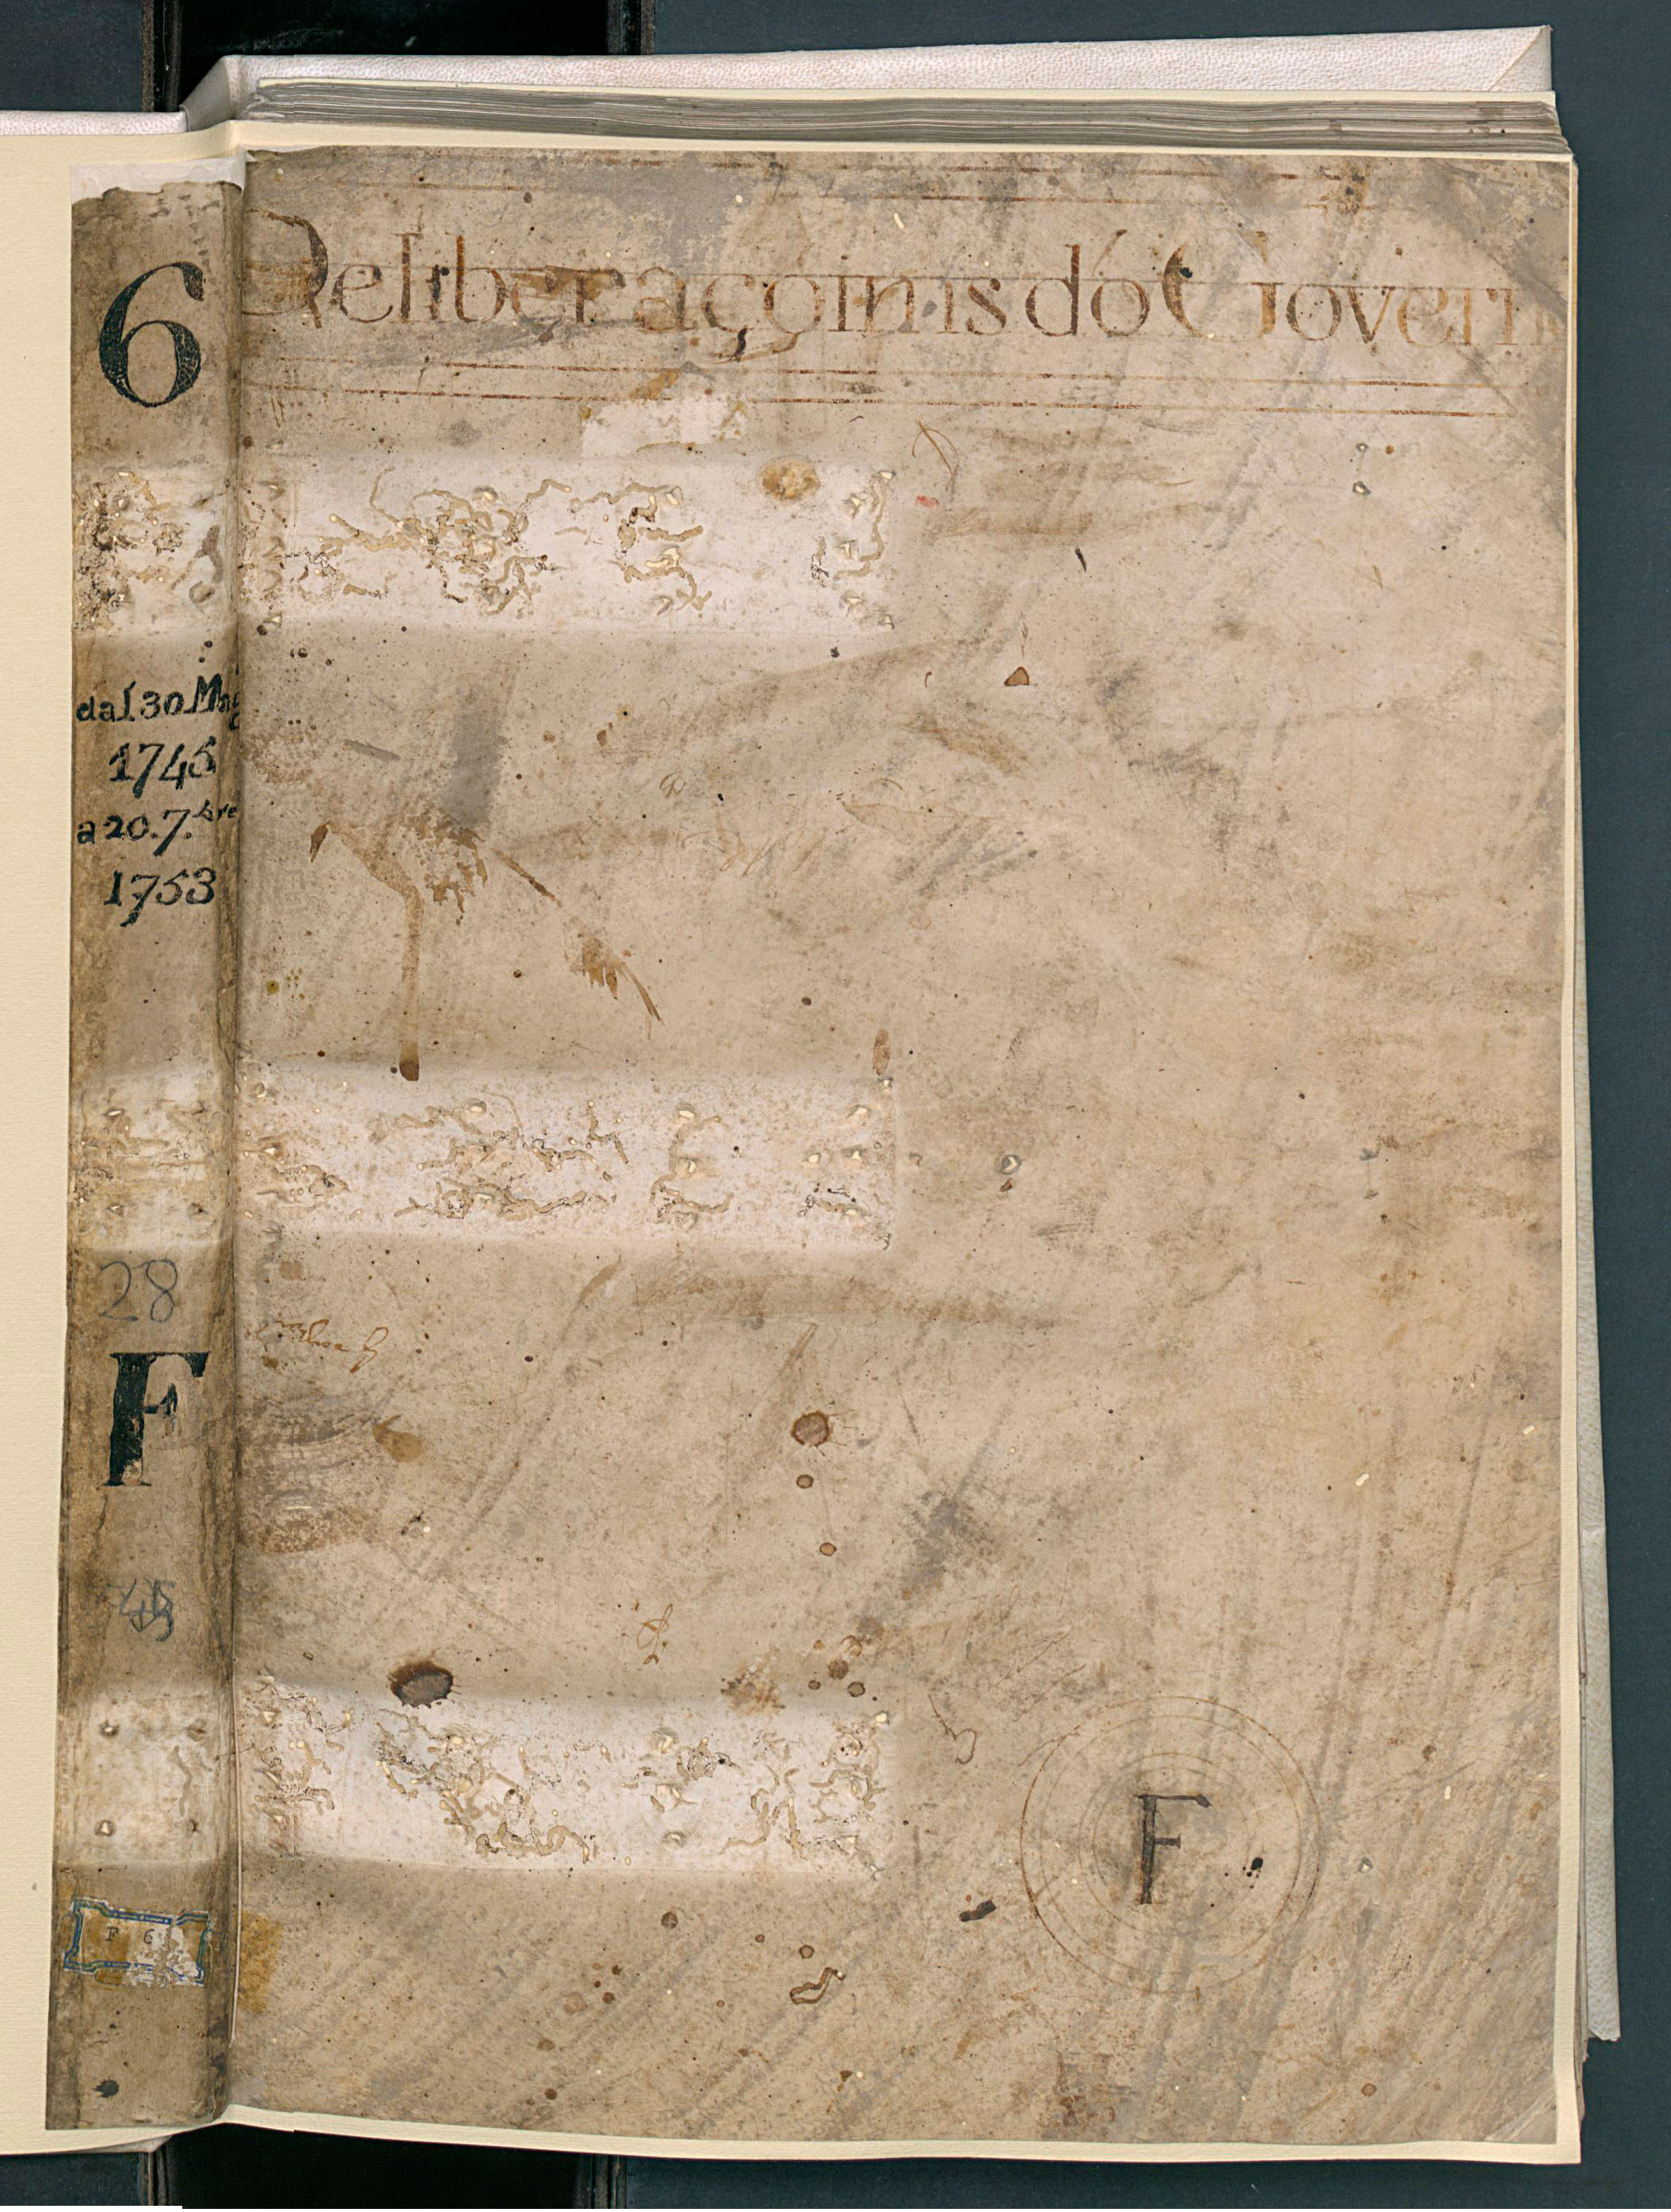 6
dal 30 Mag
1745
a 20. 7.bre
1753
28
F
F 6
Deliberaçoims dó Govern
F